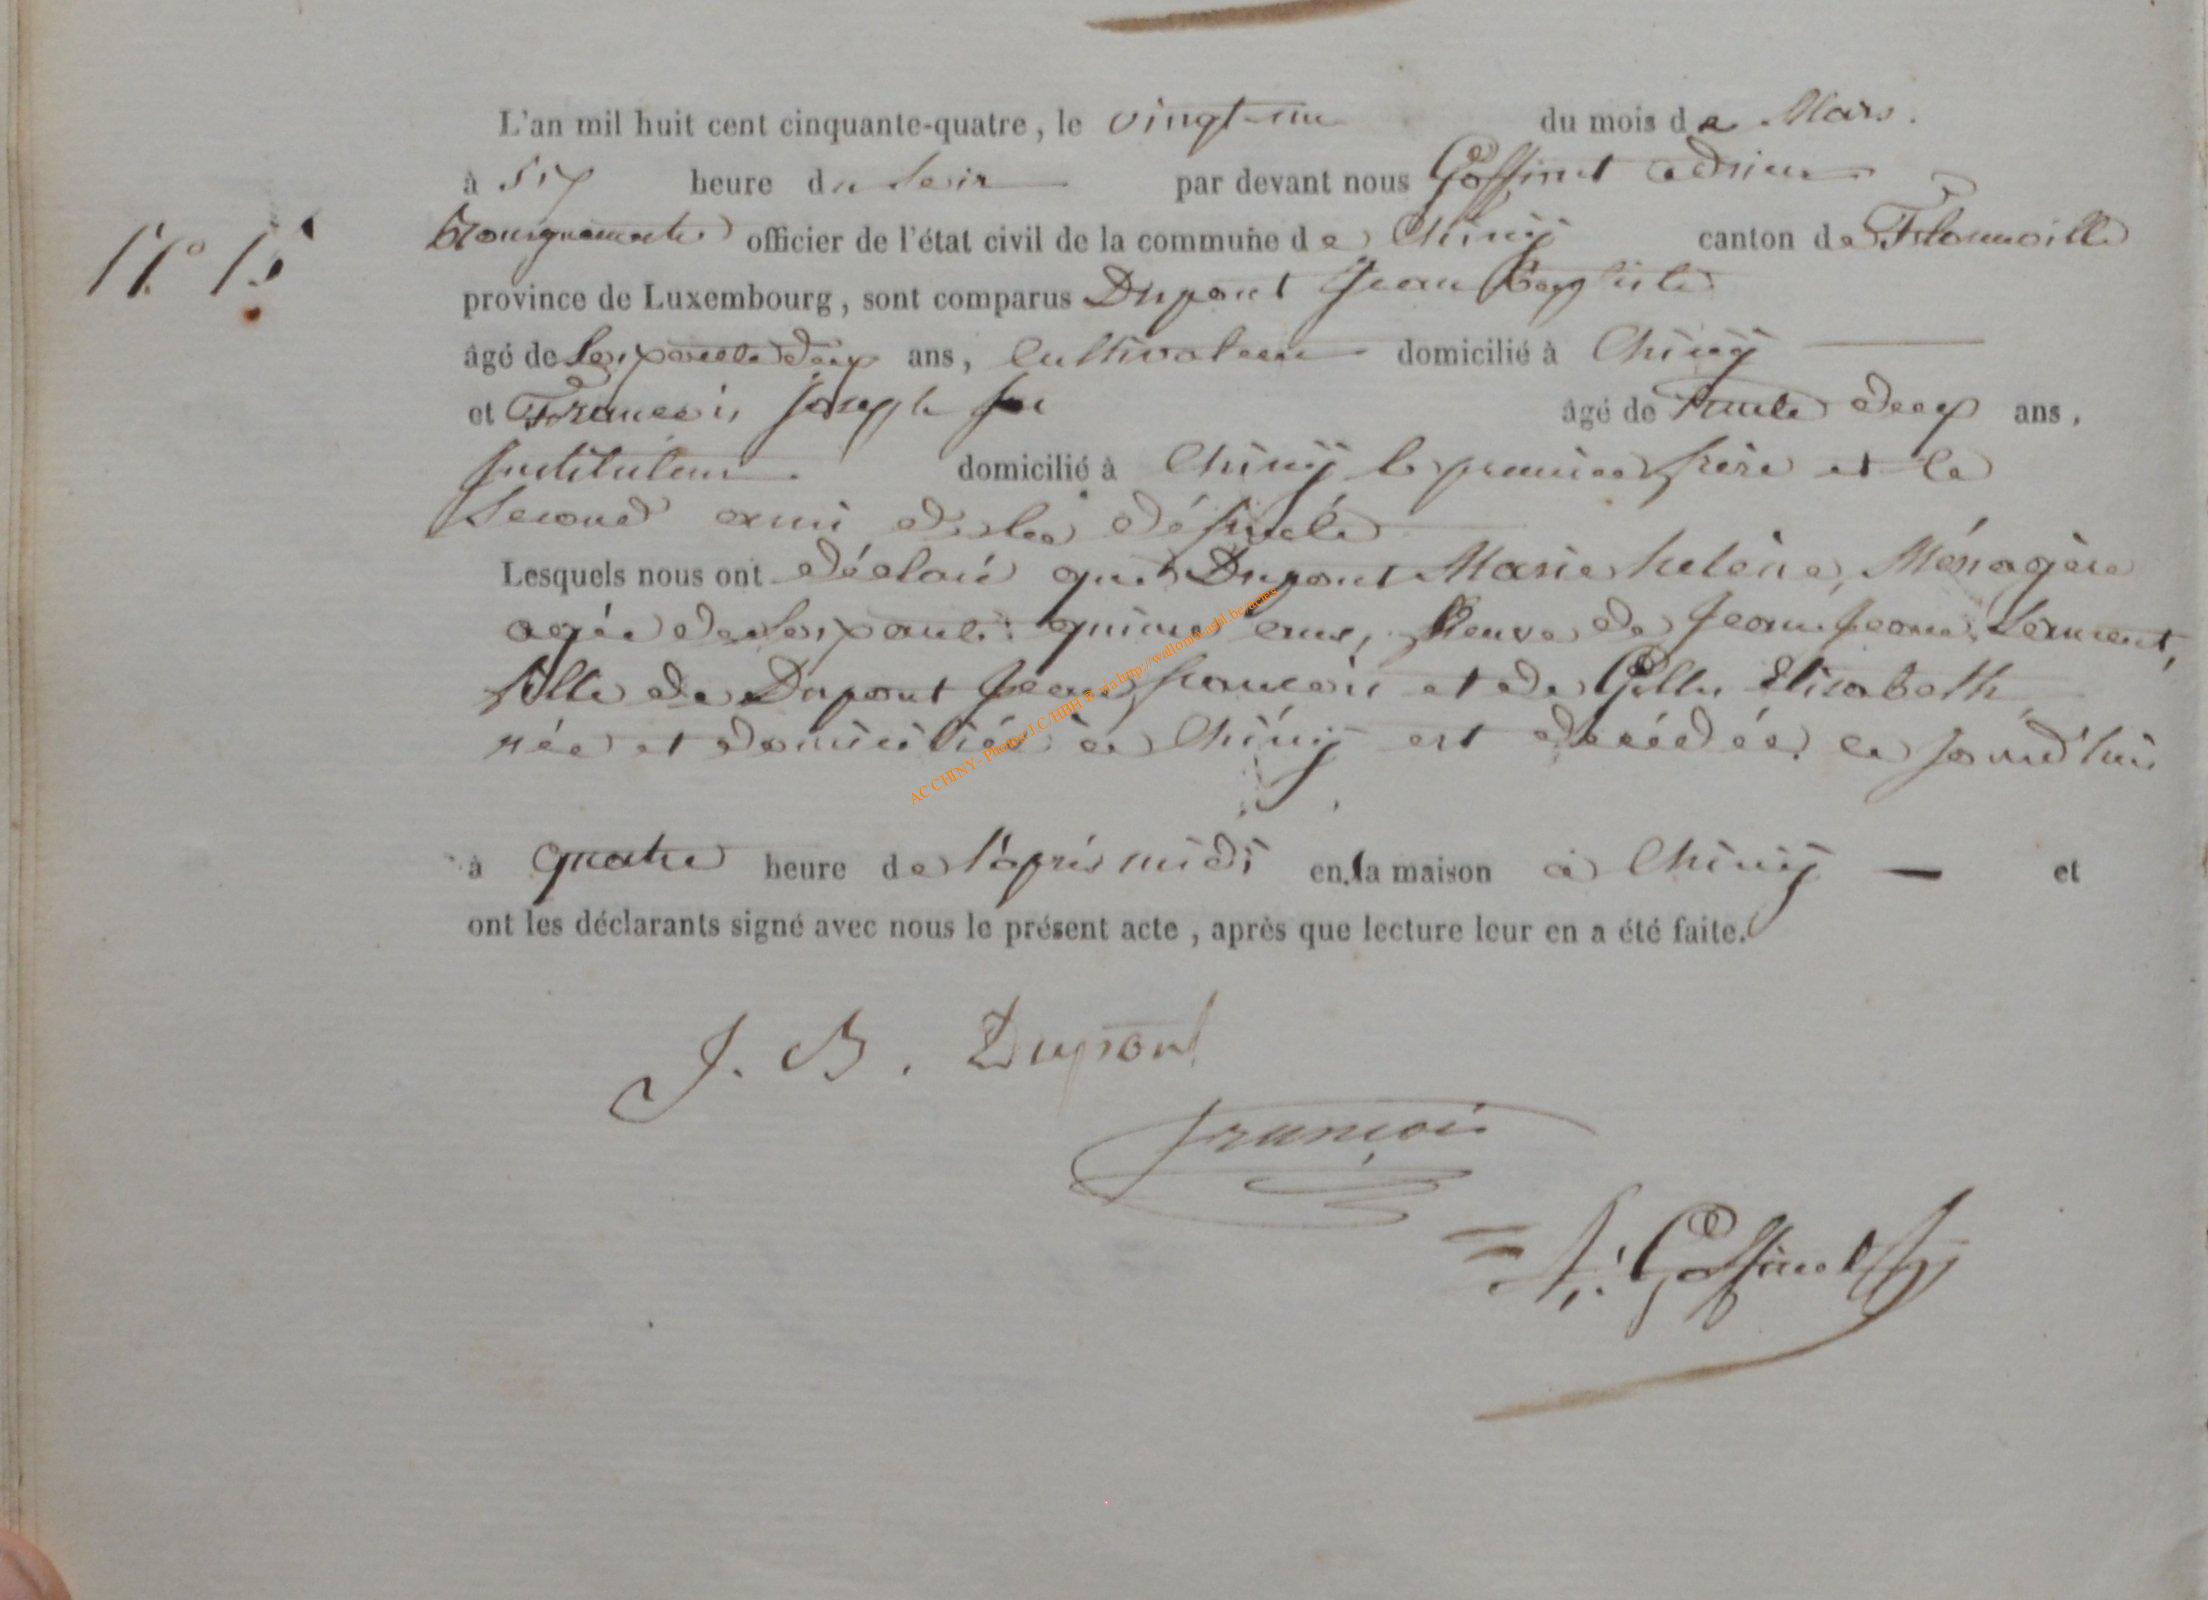 L'an mil huit cent cinquante-quatre, le vingt-un du mois de Mars.
à six heure du soir par devant nous Goffinet adrien
Bourguemestre officier de l'état civil de la commune de Chinÿ canton de Florenville
N° 15
province de Luxembourg, sont comparus Dupont Jean Baptiste
âgé de soixante deux ans, Cultivateur domicilié à Chinÿ
et Francois Joseph âgé de trente deux ans,
Instituteur domicilié à Chinÿ le premier frère et le
second ami de la défunte
Lesquels nous ont déclaré que Dupont Marie helène, Ménagère
agée de soixante quinze ans, Veuve de Jean
fille de Dupont Jean francois et de Gilles Elisabeth
née et domiciliée à Chinÿ est décédée ce jourd'hui
à quatre heure de l'après midi en la maison à Chinÿ — et
ont les déclarants signé avec nous le présent acte, après que lecture leur en a été faite.
J. B. Dupont
françois
A: Goffinet
AC CHINY- Photos J.C/HBH © via http://wallonia-asbl.be/actes